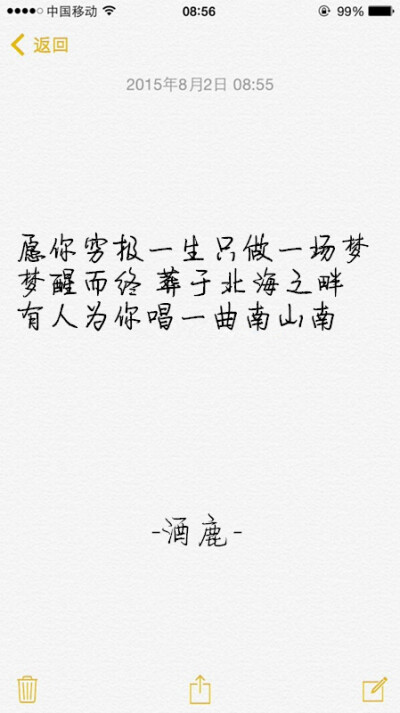 中国移动 08:56 99%
返回
2015年8月2日 08:55
愿你穷极一生只做一场梦
梦醒而终 葬于北海之畔
有人为你唱一曲南山南
-酒鹿-